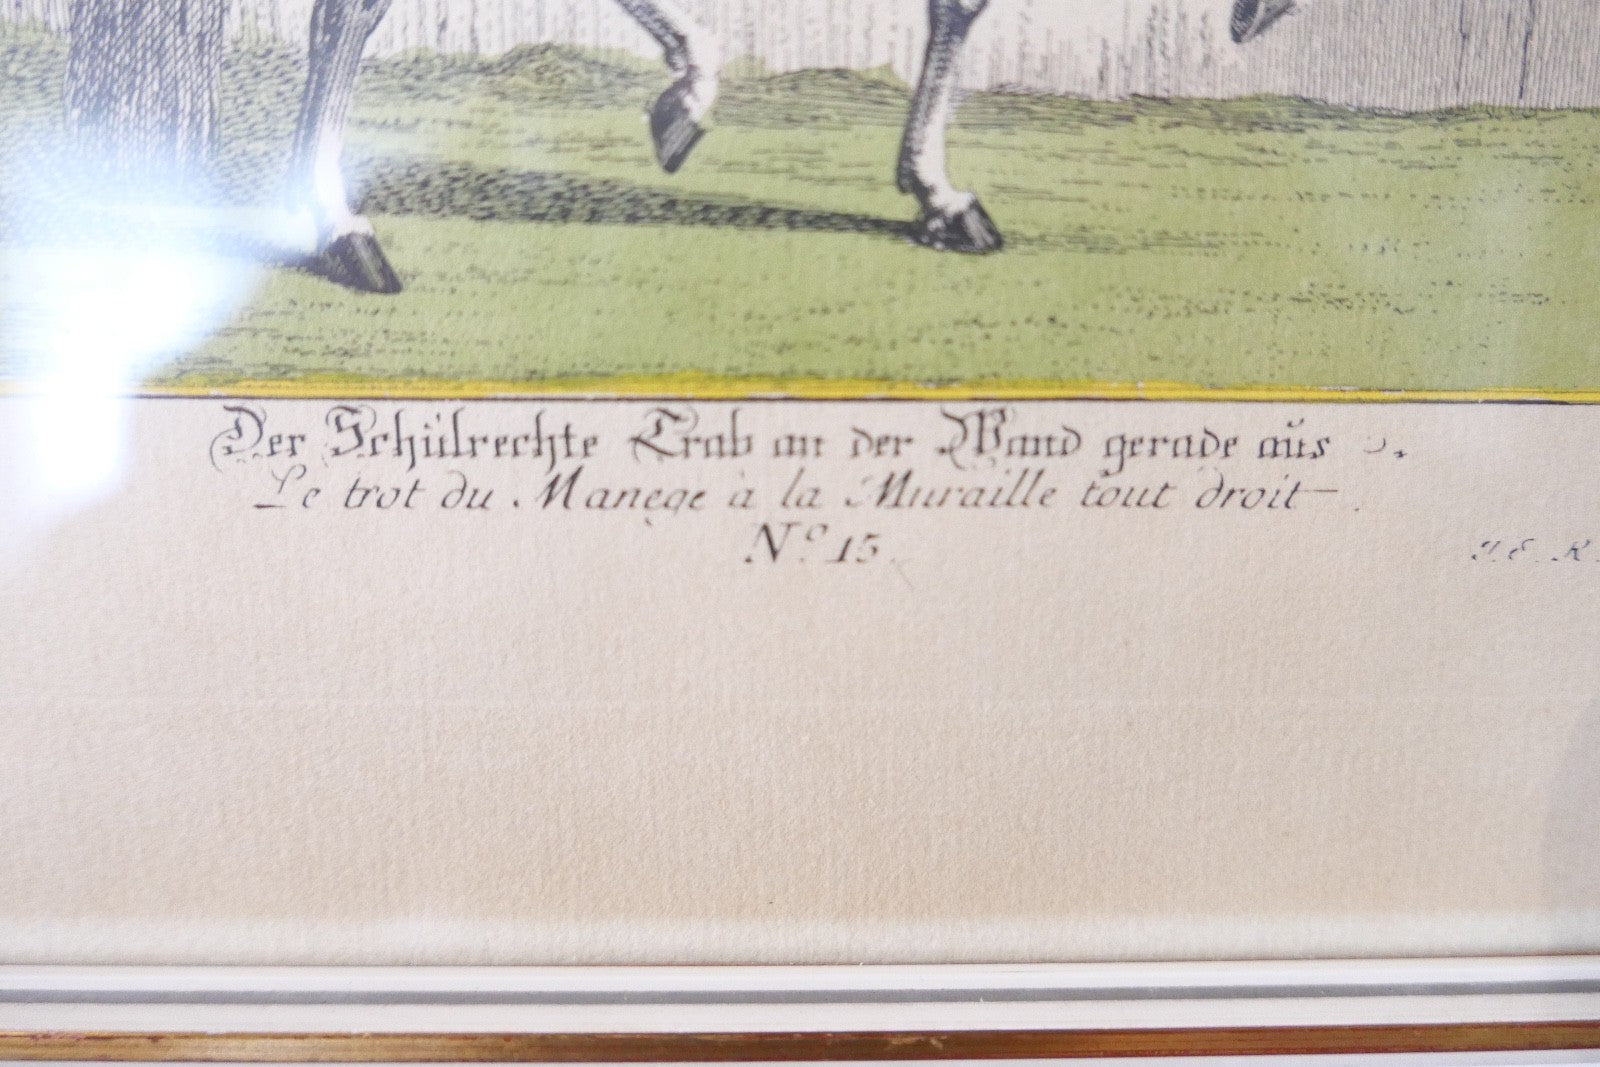 Der Schülrechte Trab an der Wand gerade aus
Le trot du Manege a la Muraille tout droit
N.º 15.
J. E. R.